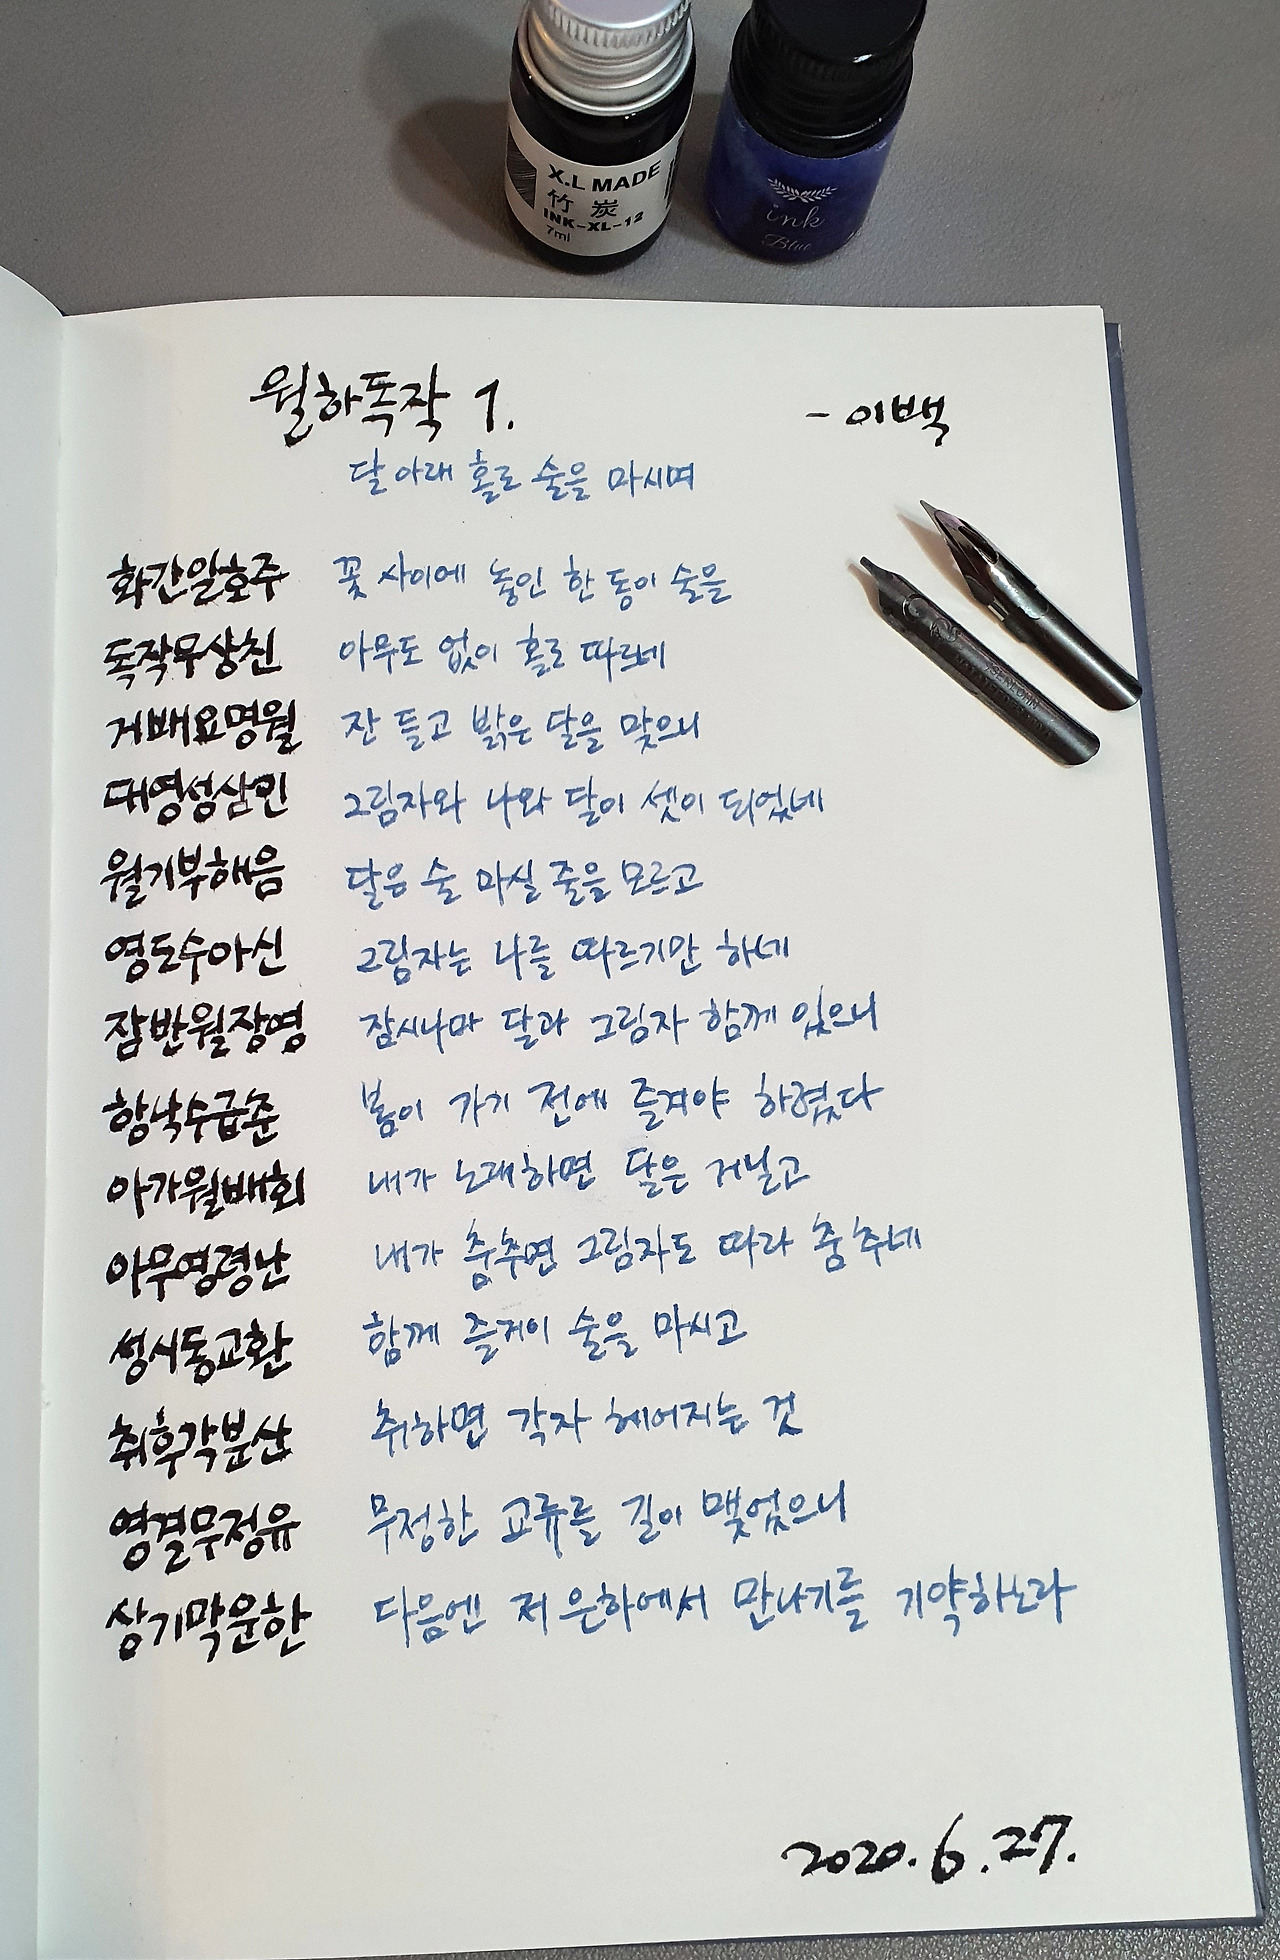 X.L MADE
竹炭
INK-XL-12
7ml
ink
Blue
월하독작 1. - 이백
달 아래 홀로 술을 마시며
화간일호주 꽃 사이에 놓인 한 동이 술을
독작무상친 아무도 없이 홀로 따르네
거배요명월 잔 들고 밝은 달을 맞으니
대영성삼인 그림자와 나와 달이 셋이 되었네
월기부해음 달은 술 마실 줄을 모르고
영도수아신 그림자는 나를 따르기만 하네
잠반월장영 잠시나마 달과 그림자 함께 있으니
항낙수급춘 봄이 가기 전에 즐겨야 하렸다
아가월배회 내가 노래하면 달은 거닐고
아무영령난 내가 춤추면 그림자도 따라 춤추네
성시동교환 함께 즐거이 술을 마시고
취후각분산 취하면 각자 헤어지는 것
영결무정유 무정한 교류를 길이 맺었으니
상기막운한 다음엔 저 은하에서 만나기를 기약하노라
2020.6.27.